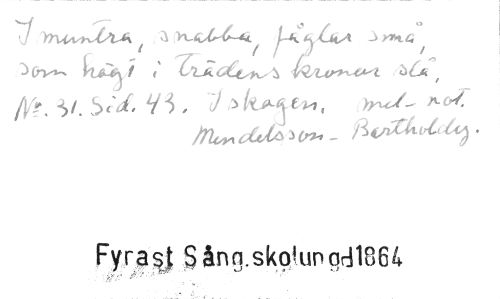 I muntra, snabba, fåglar små,
som högt i trädens kronor slå,
No. 31. Sid. 43. I skogen. mel-not.
Mendelsson-Bartholdy.
Fyrast Sång.skolungd1864